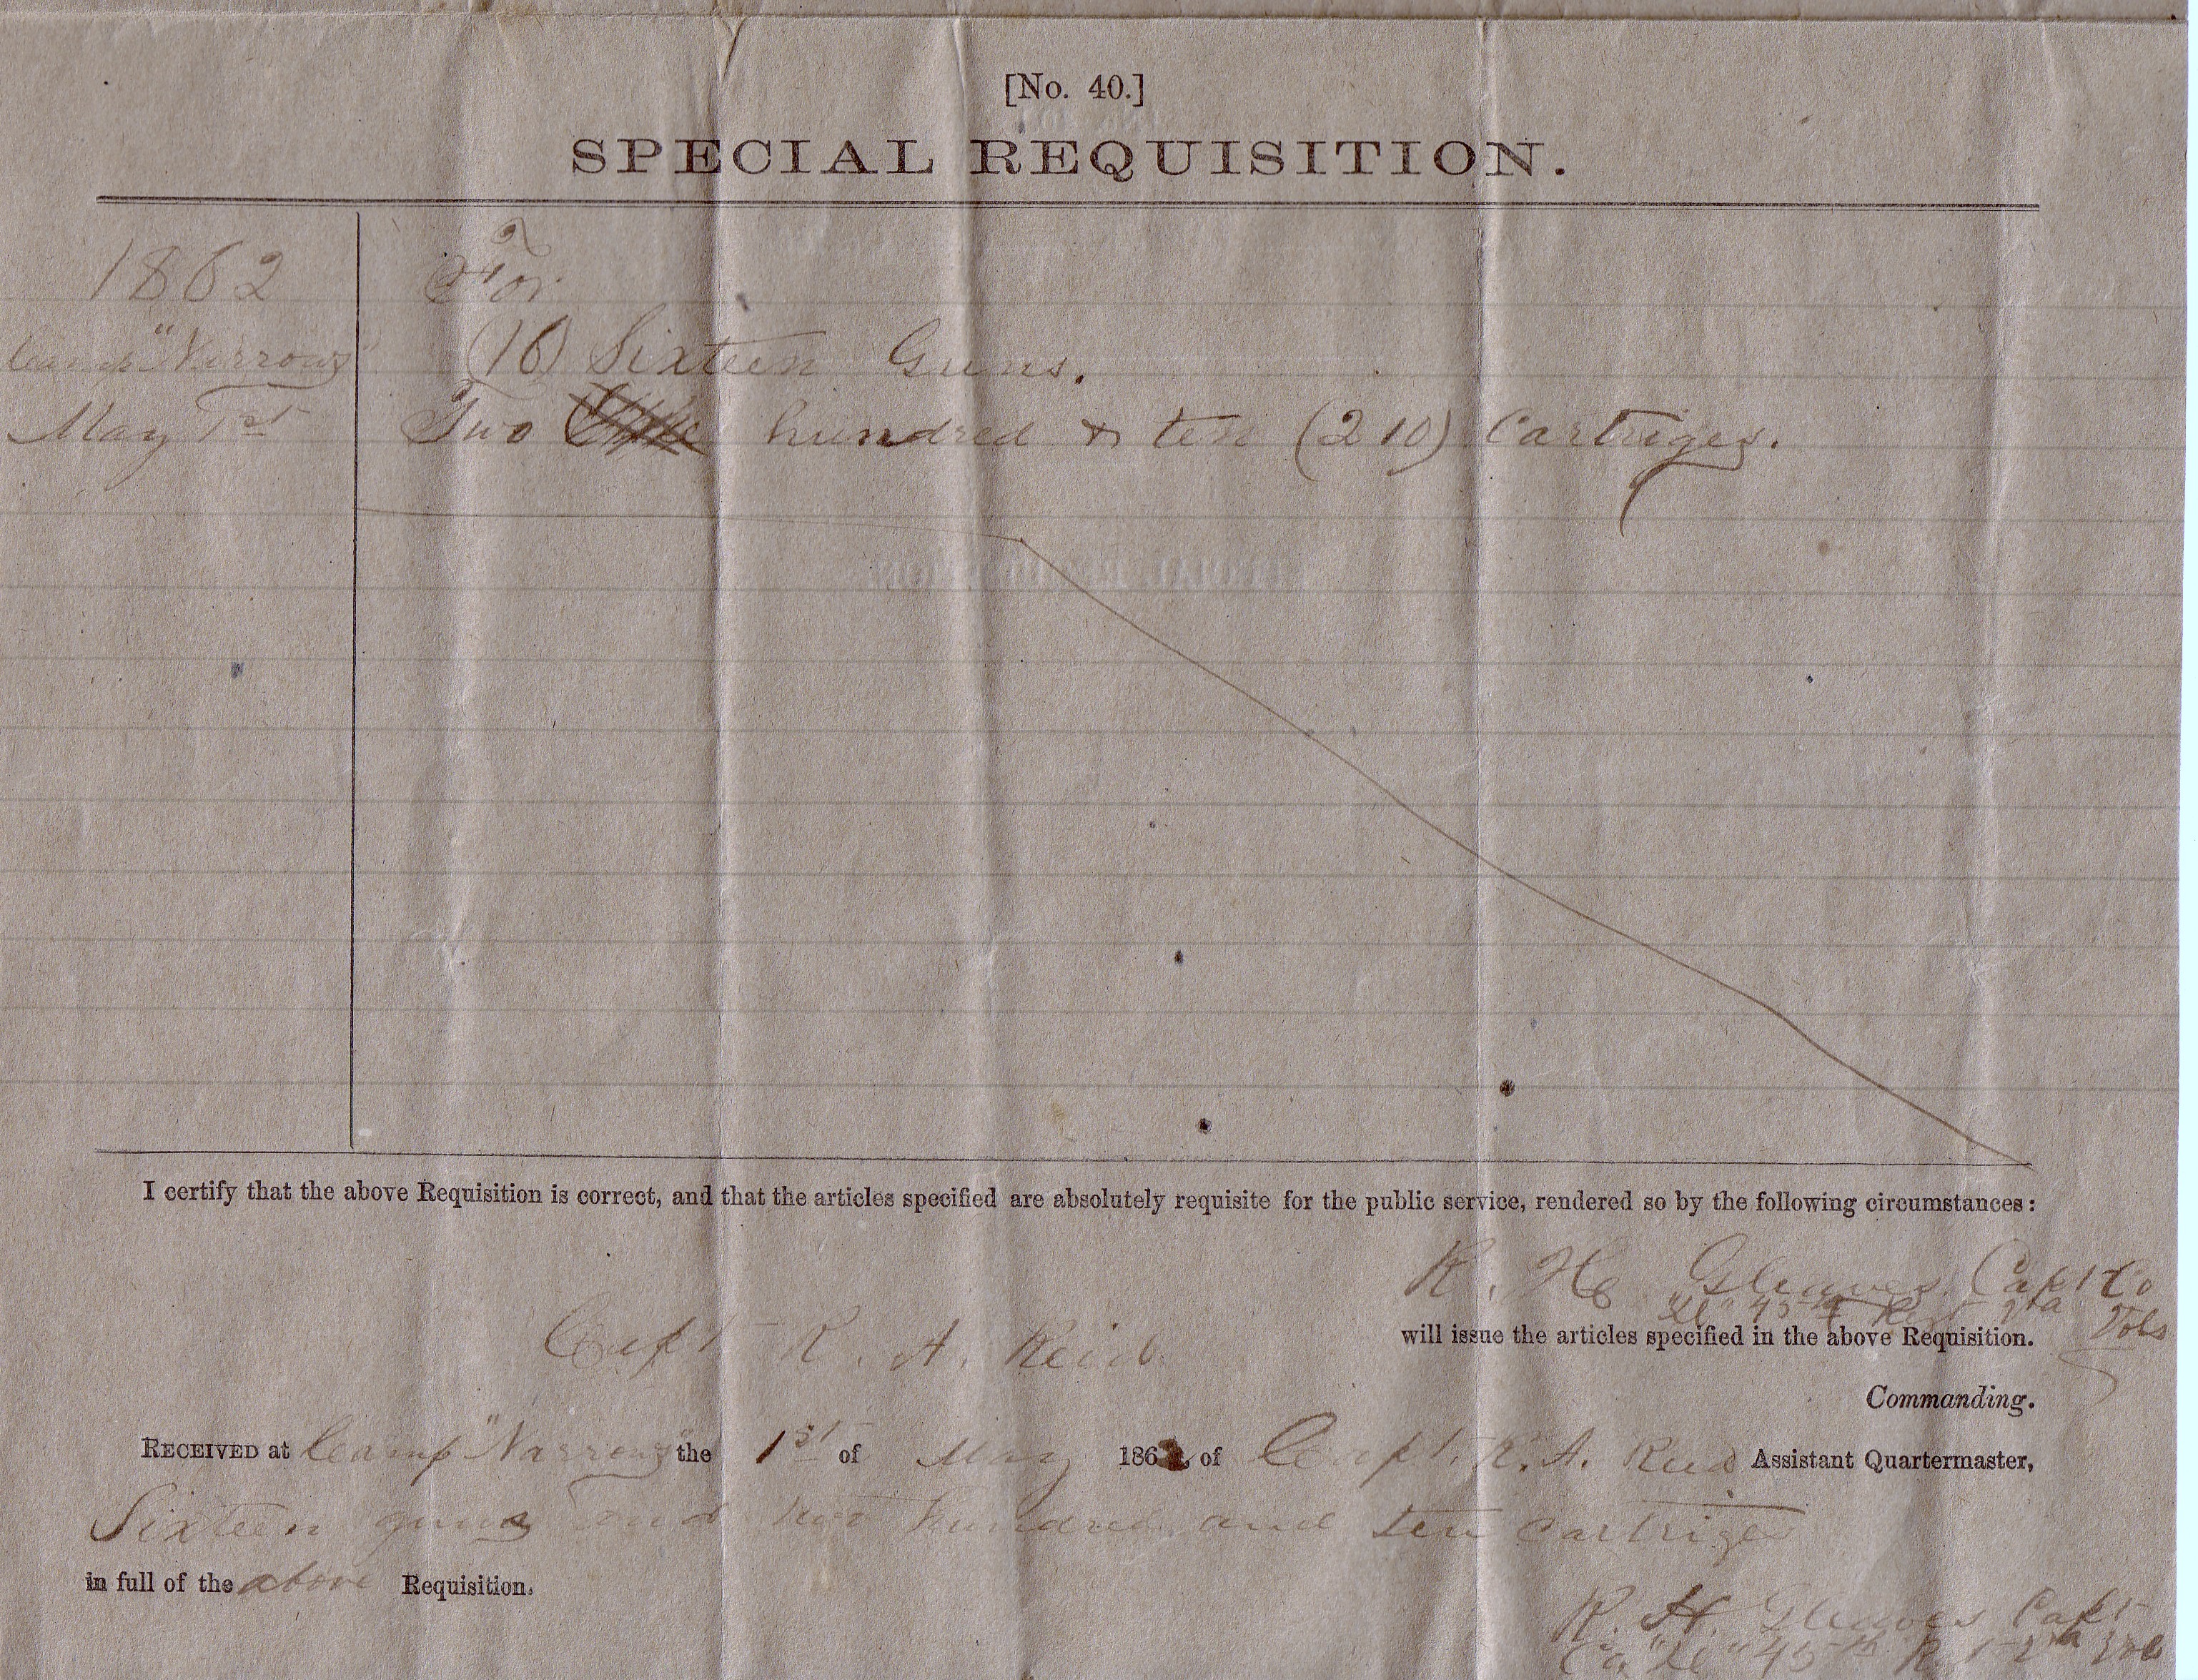 [No. 40.]
SPECIAL REQUISITION.
1862
For
Camp "Narrows"
(16) Sixteen Guns.
May 1st
Two hundred & ten (210) Cartriges.
I certify that the above Requisition is correct, and that the articles specified are absolutely requisite for the public service, rendered so by the following circumstances:
R. H. Gleaves Capt Co
45th Regt Va Vols
Capt R. A. Reid
will issue the articles specified in the above Requisition.
Commanding.
RECEIVED at Camp "Narrows" the 1st of May 1862 of Capt. R. A. Reid Assistant Quartermaster,
Sixteen guns and two hundred and ten cartriges
in full of the above Requisition.
R. H. Gleaves Capt
Co 45th R Va Vols